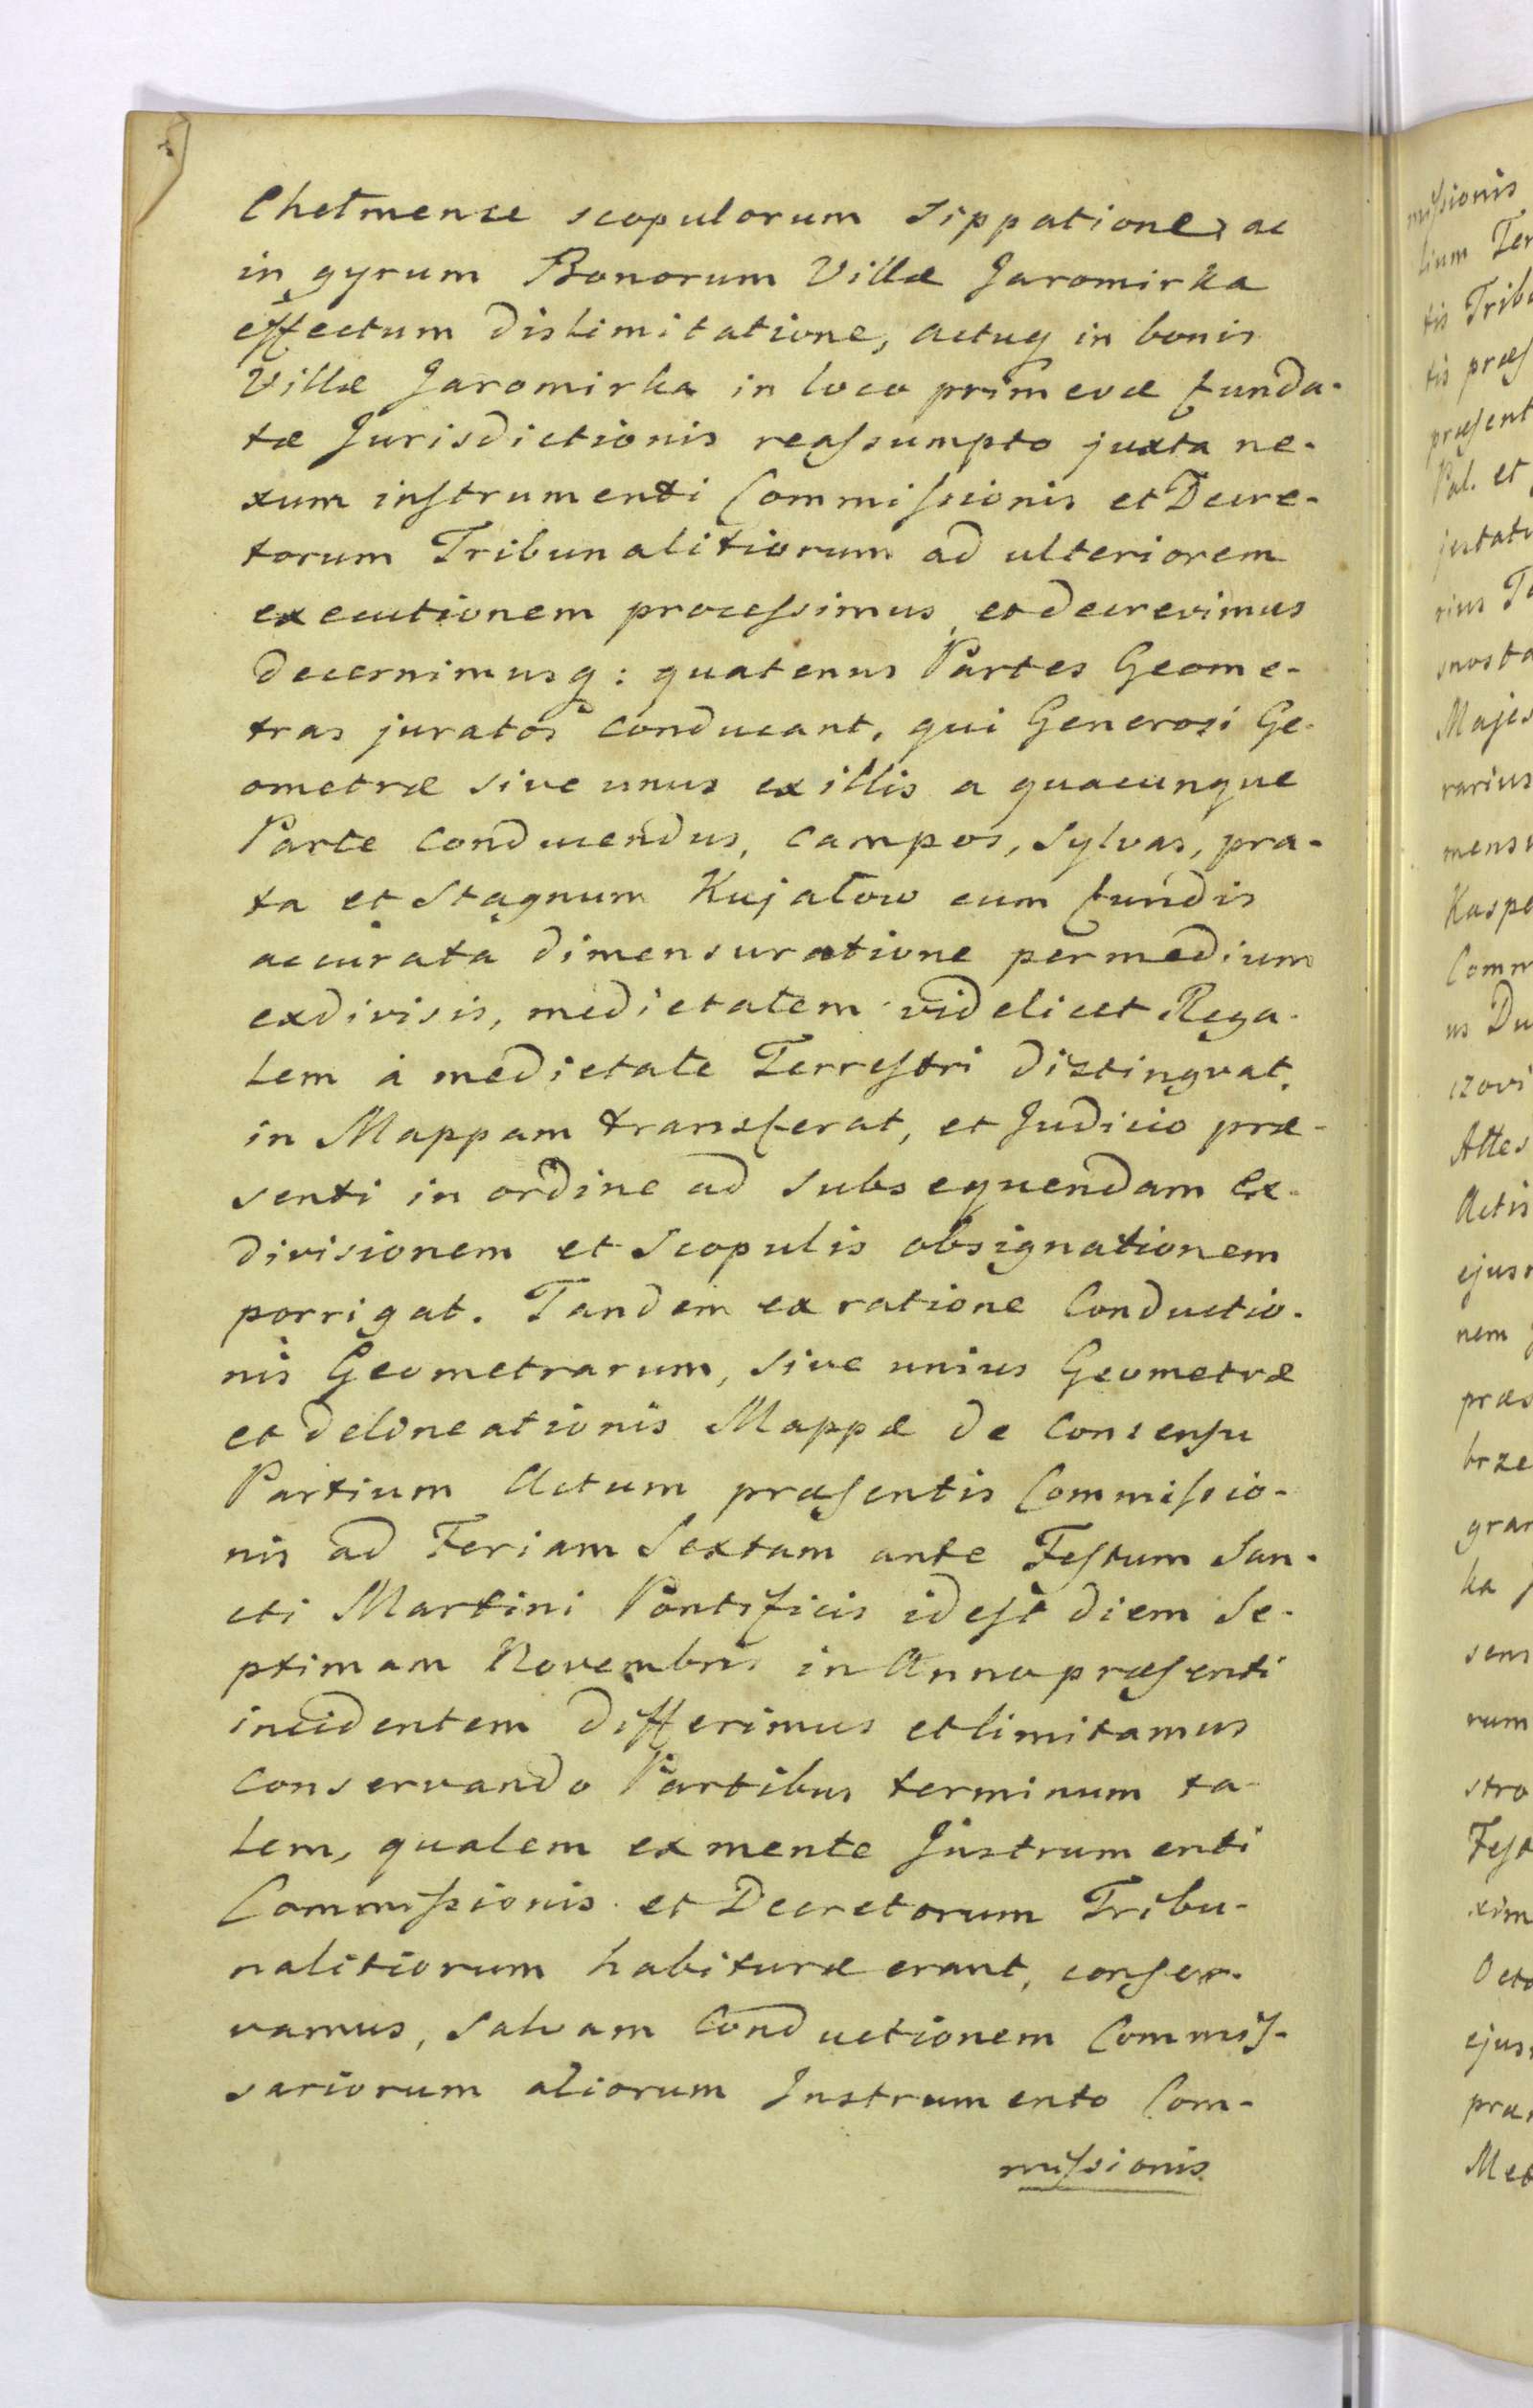 Chełmense scopulorum sippatione, ac
in gyrum Bonorum Villæ Jaromirka
effectum dislimitatione, actuq in bonis
Villæ Jaromirka in loco primevæ funda-
tæ Jurisdictionis reaſsumpto juxta ne-
xum inſtrumenti Commiſsionis et Decre-
torum Tribunalitiorum ad ulteriorem
executionem proceſsimus et decrevimus
decernimusq: quatenus Partes Geome-
tras juratos conducant, qui Generosi Ge-
ometræ sive unus ex illis a quacunque
Parte conducendus, campos, sylvas, pra-
ta et Stagnum Kujatow cum fundis
accurata dimensuratione per medium
exdivisis, medietatem videlicet Rega-
lem à medietate Terreſtri distinguat,
in Mappam transferat, et Judicio præ-
senti in ordine ad subsequendam ex-
divisionem et scopulis obsignationem
porrigat. Tandem ex ratione Conductio-
nis Geometrarum, sive unius Geometræ
et delineationis Mappæ de consenſu
Partium Actum præſentis Commiſsio-
nis ad Feriam Sextam ante Feſtum San-
cti Martini Pontificis id eſt diem Se-
ptimam Novembris in Anno præſenti
incidentem differimus et limitamus
conservando Partibus terminum ta-
lem, qualem ex mente Jnstrumenti
Commiſsionis et Decretorum Tribu-
nalitiorum habituræ erant, conſer-
vamus, salvam Conductionem Commiſ-
sariorum aliorum Jnstrumento Com-
miſsionis
miſsionis
lium Ter
tis Tribu
tis præſ
præſent
Pal. et
jestatis
rius
Majes
rarius
mensu
Kaspe
Comm
us Du
czovi
Attes
Actis
ejus
nem
præs
brze
gran
ka
sens
rum
stro
Feſt
xim
Octo
ejus
præs
Met